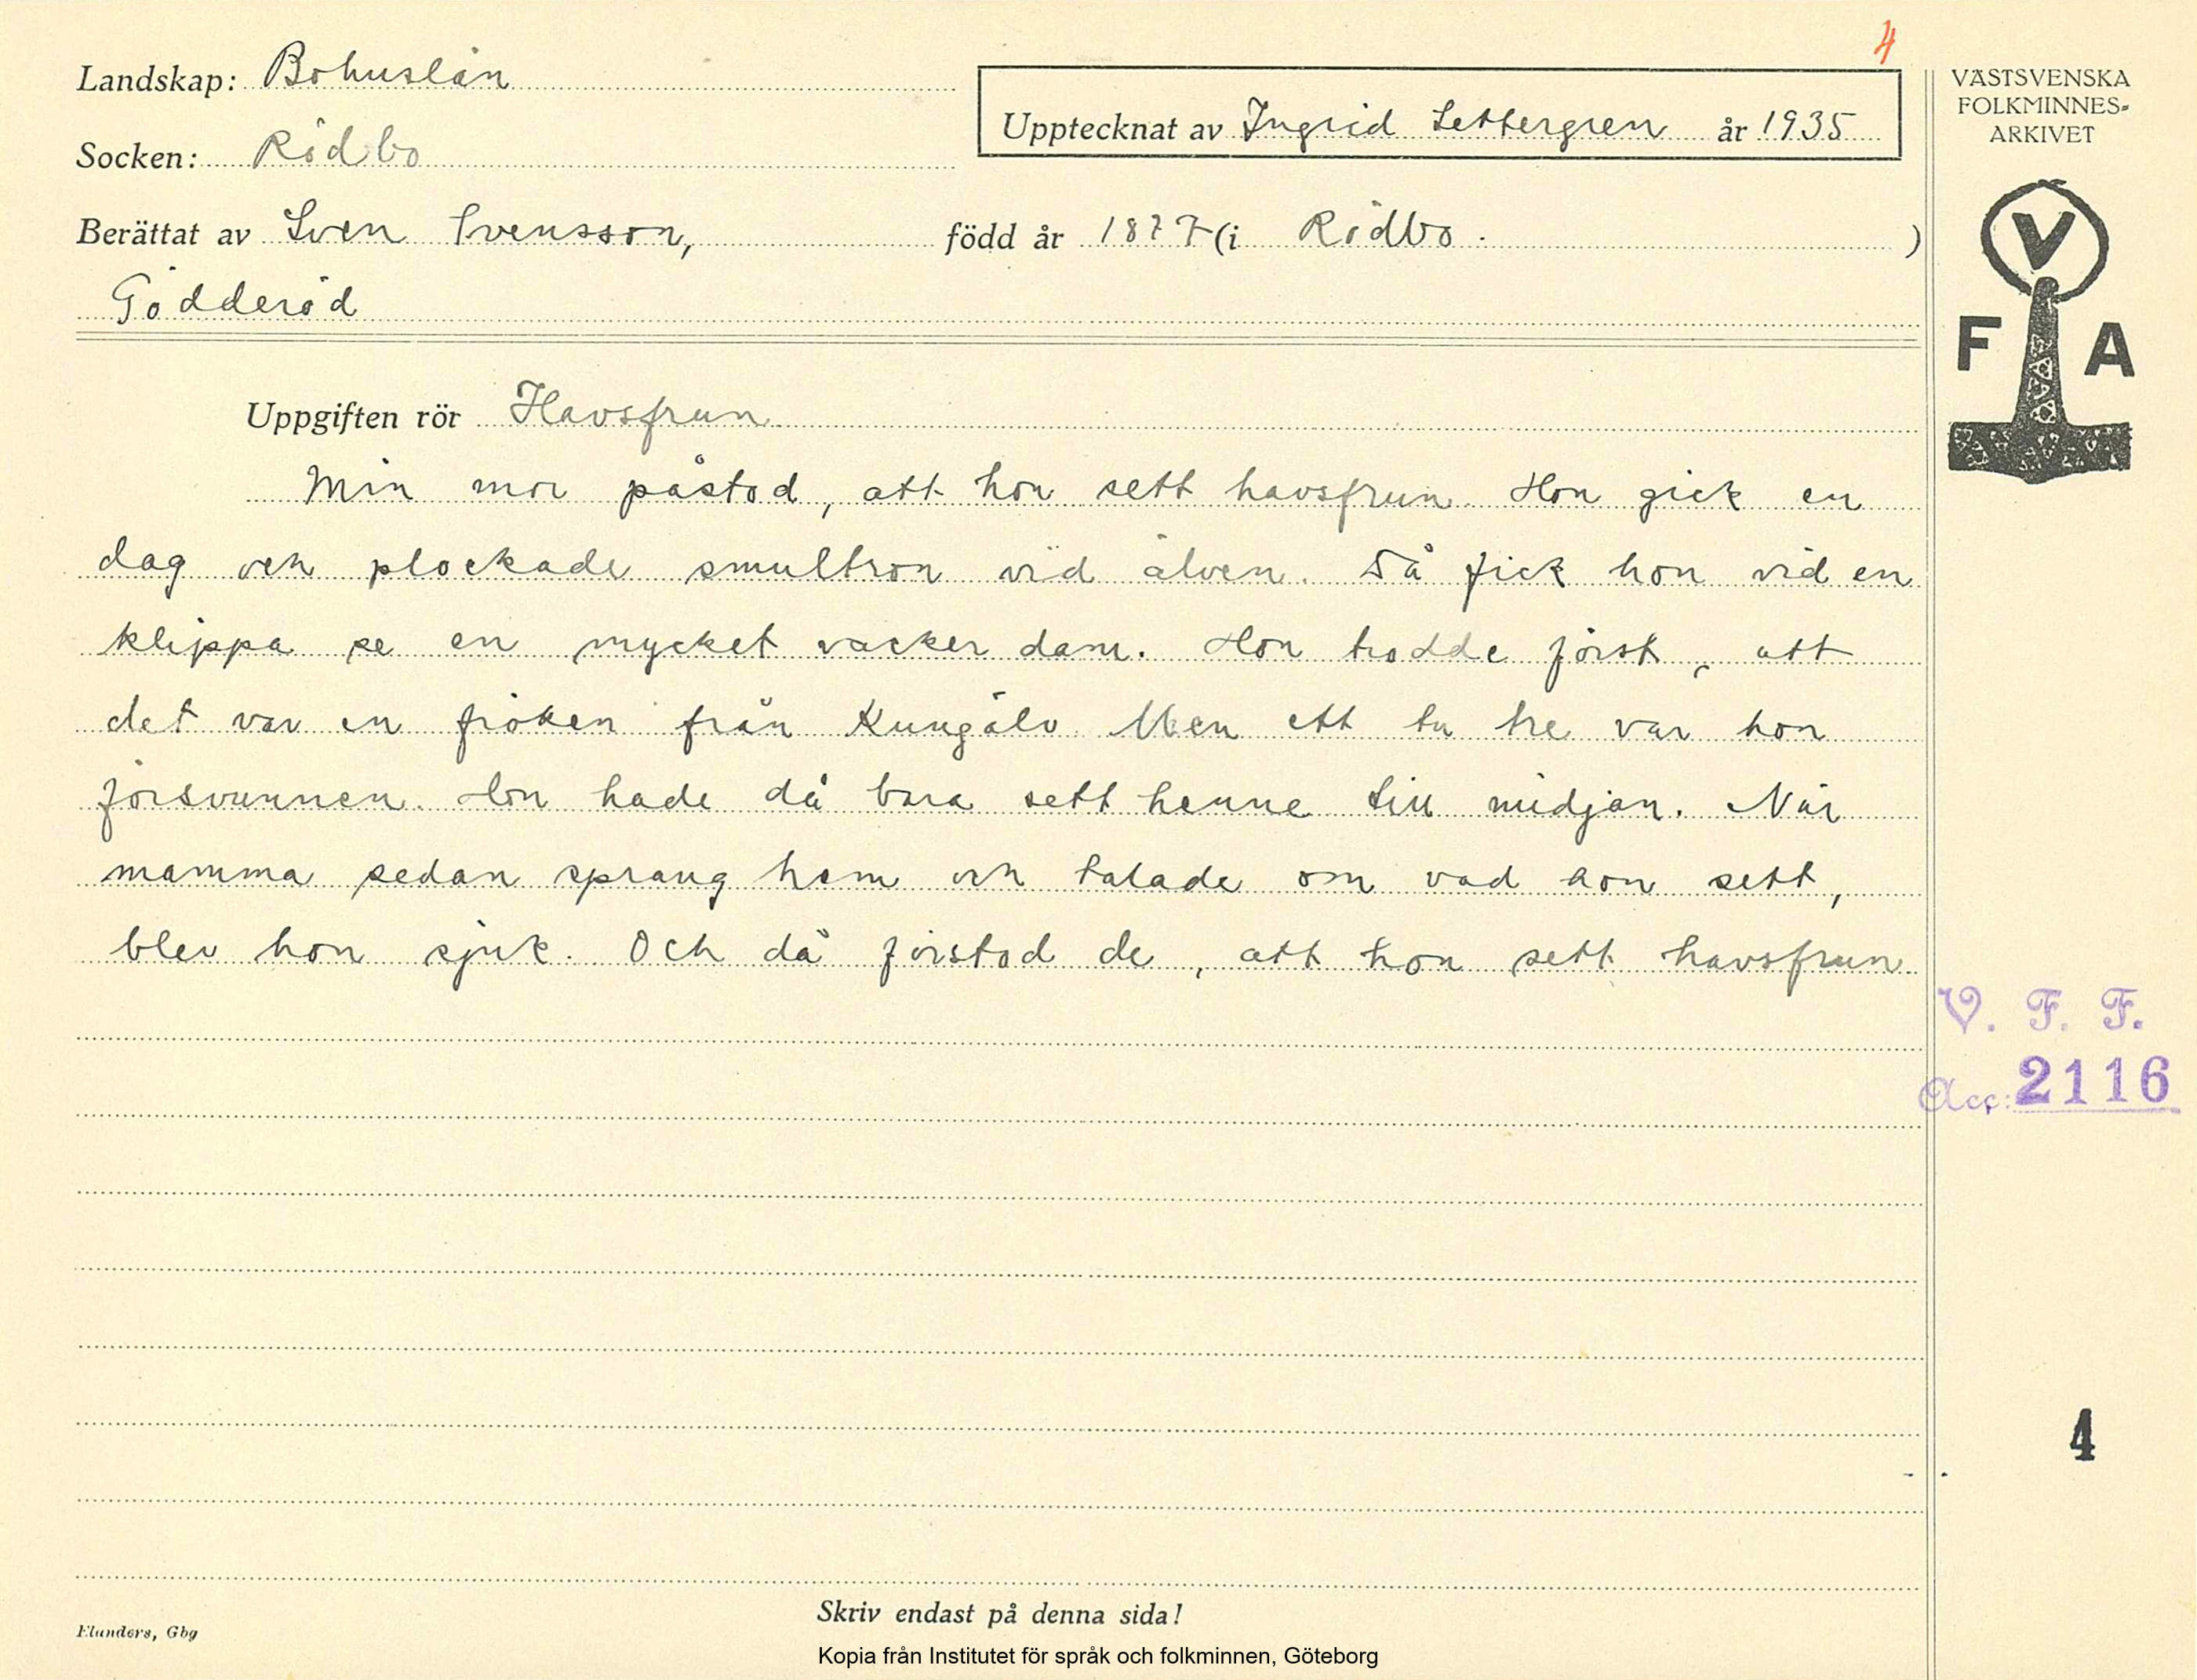 4
Landskap: Bohuslän
Upptecknat av Ingrid Settergren år 1935
VÄSTSVENSKA
FOLKMINNES-
ARKIVET
Socken: Rödbo
Berättat av Sven Svensson, född år 1877 (i Rödbo. )
Gödderöd
V
F A
Uppgiften rör Havsfrun
Min mor påstod, att hon sett havsfrun. Hon gick en
dag och plockade smultron vid älven. Då fick hon vid en
klippa se en mycket vacker dam. Hon trodde först, att
det var en fröken från Kungälv. Men ett tu tre var hon
försvunnen. Hon hade då bara sett henne till midjan. När
mamma sedan sprang hem och talade om vad hon sett,
blev hon sjuk. Och då förstod de, att hon sett havsfrun.
V. F. F.
Acc: 2116
4
Skriv endast på denna sida!
Elanders, Gbg
Kopia från Institutet för språk och folkminnen, Göteborg